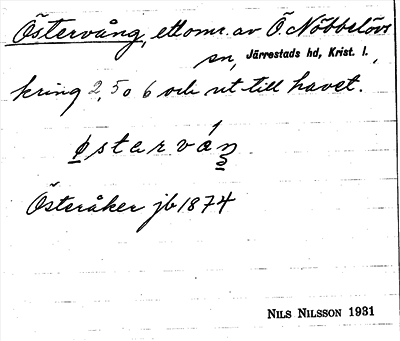 Östervång, ett omr. av Ö. Nöbbelövs
sn, Järrestads hd, Krist. l.,
kring 2, 5 o 6 och ut till havet.
østerváŋ
Österåker jb 1874
NILS NILSSON 1931